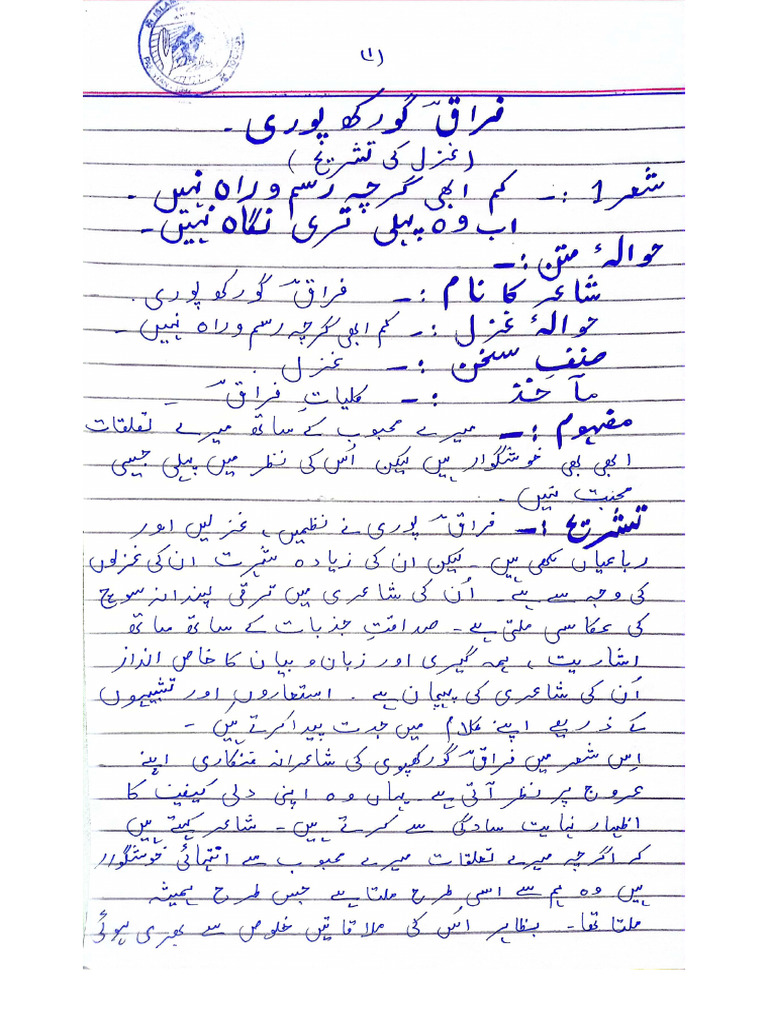 (۱)
فراقؔ گورکھ پوری ۔
(غزل کی تشریح)
شعر 1 :- کم ابھی گرچہ رسم و راہ نہیں ۔
اب وہ پہلی تری نگاہ نہیں ۔
حوالۂ متن :-
شاعر کا نام :- فراقؔ گورکھ پوری .
حوالۂ غزل :- کم ابھی گرچہ رسم و راہ نہیں ۔
صنفِ سخن :- غزل .
مآخذ :- کلیاتِ فراقؔ ۔
مفہوم :- میرے محبوب کے ساتھ میرے تعلقات
ابھی بھی خوشگوار ہیں لیکن اُس کی نظر میں پہلی جیسی
محبت نہیں ۔
تشریح :- فراقؔ پوری نے نظمیں، غزلیں اور
رباعیاں لکھی ہیں ۔ لیکن ان کی زیادہ شہرت ان کی غزلوں
کی وجہ سے ہے ۔ اُن کی شاعری میں ترقی پسندانہ سوچ
کی عکاسی ملتی ہے ۔ صداقتِ جذبات کے ساتھ ساتھ
اشاریت ، ہمہ گیری اور زبان و بیان کا خاص انداز
اُن کی شاعری کی پہچان ہے . استعاروں اور تشبیہوں
کے ذریعے اپنے کلام میں جدت پیدا کرتے ہیں ۔
اِس شعر میں فراقؔ گورکھپوی کی شاعرانہ فنکاری اپنے
عروج پر نظر آتی ہے ۔ یہاں وہ اپنی دلی کیفیت کا
اظہار نہایت سادگی سے کرتے ہیں ۔ شاعر کہتے ہیں
کہ اگرچہ میرے تعلقات میرے محبوب سے انتہائی خوشگوار
ہیں وہ ہم سے اسی طرح ملتا ہے جس طرح ہمیشہ
ملتا تھا ۔ بظاہر اُس کی ملاقاتیں خلوص سے بھری ہوئی